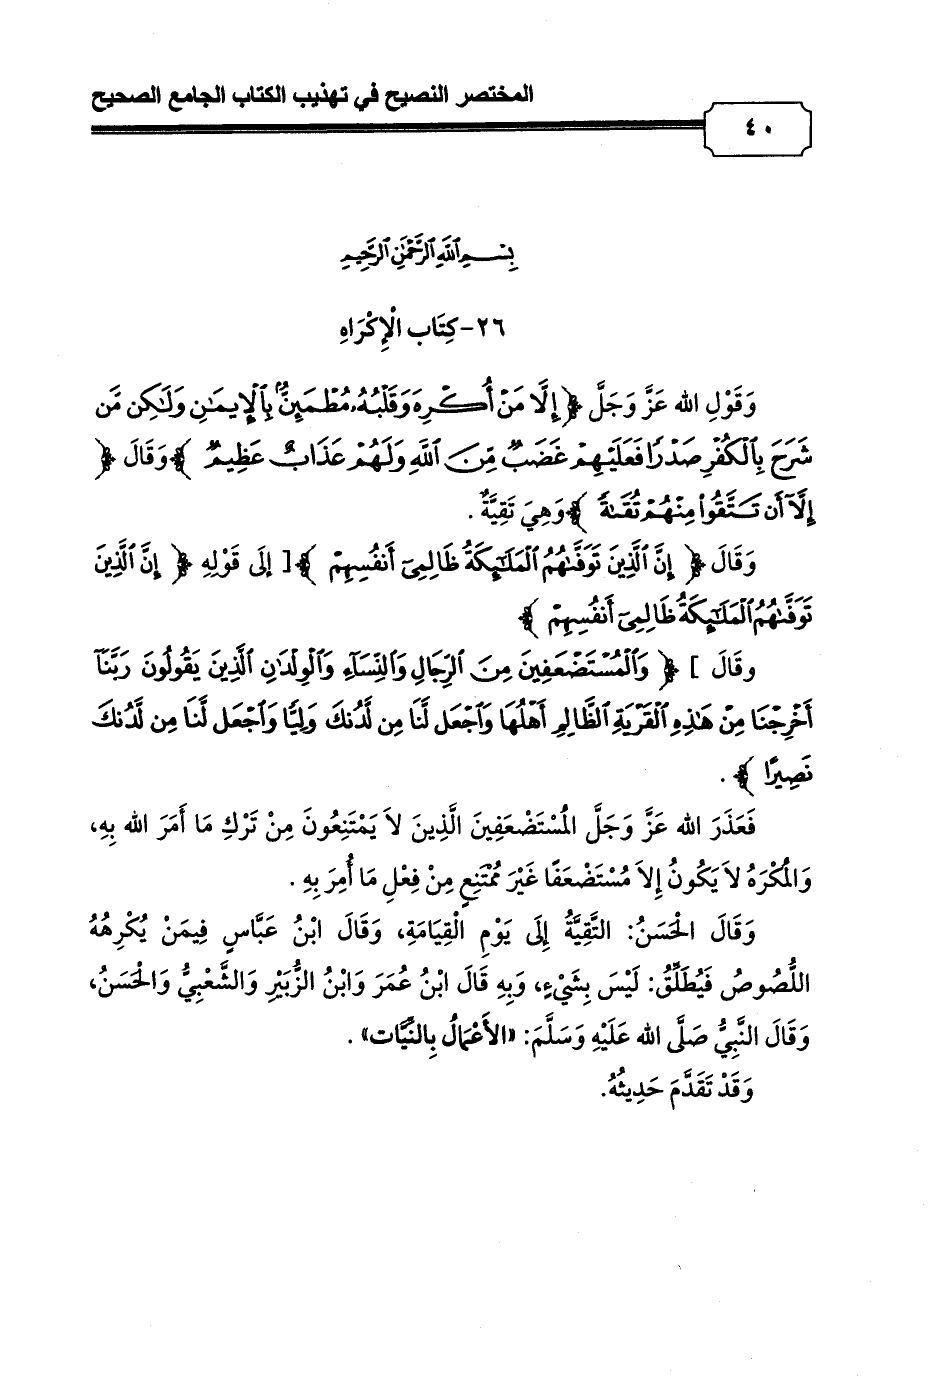 المختصر النصيح في تهذيب الكتاب الجامع الصحيح
٤٠
بِسْمِ ٱللَّهِ ٱلرَّحْمَٰنِ ٱلرَّحِيمِ
٢٦- كِتَاب الْإِكْرَاهِ
وَقَوْلِ الله عَزَّ وَجَلَّ ﴿ إِلَّا مَنْ أُكْرِهَ وَقَلْبُهُۥ مُطْمَئِنٌّۢ بِٱلْإِيمَٰنِ وَلَٰكِن مَّن
شَرَحَ بِٱلْكُفْرِ صَدْرًا فَعَلَيْهِمْ غَضَبٌ مِّنَ ٱللَّهِ وَلَهُمْ عَذَابٌ عَظِيمٌ ﴾ وَقَالَ ﴿
إِلَّآ أَن تَتَّقُوا۟ مِنْهُمْ تُقَىٰةً ﴾ وَهِيَ تَقِيَّةٌ .
وَقَالَ ﴿ إِنَّ ٱلَّذِينَ تَوَفَّىٰهُمُ ٱلْمَلَٰٓئِكَةُ ظَالِمِىٓ أَنفُسِهِمْ ﴾ [ إلَى قَوْلِهِ ﴿ إِنَّ ٱلَّذِينَ
تَوَفَّىٰهُمُ ٱلْمَلَٰٓئِكَةُ ظَالِمِىٓ أَنفُسِهِمْ ﴾
وقَالَ ] ﴿ وَٱلْمُسْتَضْعَفِينَ مِنَ ٱلرِّجَالِ وَٱلنِّسَآءِ وَٱلْوِلْدَٰنِ ٱلَّذِينَ يَقُولُونَ رَبَّنَآ
أَخْرِجْنَا مِنْ هَٰذِهِ ٱلْقَرْيَةِ ٱلظَّالِمِ أَهْلُهَا وَٱجْعَل لَّنَا مِن لَّدُنكَ وَلِيًّا وَٱجْعَل لَّنَا مِن لَّدُنكَ
نَصِيرًا ﴾ .
فَعَذَرَ الله عَزَّ وَجَلَّ المُسْتَضْعَفِينَ الَّذِينَ لاَ يَمْتَنِعُونَ مِنْ تَرْكِ مَا أَمَرَ الله بِهِ،
وَالمُكْرَهُ لاَ يَكُونُ إِلاَ مُسْتَضْعَفًا غَيْرَ مُمْتَنِعٍ مِنْ فِعْلِ مَا أُمِرَ بِهِ .
وَقَالَ الحَسَنُ: التَّقِيَّةُ إِلَى يَوْمِ الْقِيَامَةِ، وَقَالَ ابْنُ عَبَّاسٍ فِيمَنْ يُكْرِهُهُ
اللُّصُوصُ فَيُطَلِّقُ: لَيْسَ بِشَيْءٍ، وَبِهِ قَالَ ابْنُ عُمَرَ وَابْنُ الزُّبَيْرِ وَالشَّعْبِيُّ وَالحَسَنُ،
وَقَالَ النَّبِيُّ صَلَّى الله عَلَيْهِ وَسَلَّمَ: «الأَعْمَالُ بِالنِّيَّات» .
وَقَدْ تَقَدَّمَ حَدِيثُهُ.